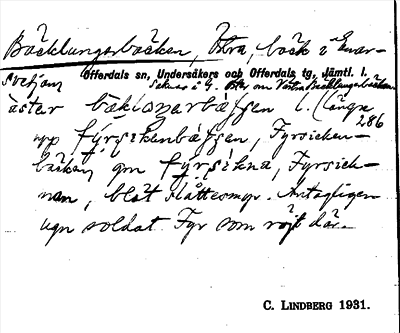 Bäcklungarbäcken, Östra, bäck i Kvar-
svehjon
Offerdals sn, Undersåkers och Offerdals tg, Jämtl. l.
Saknas i G. Öster om Västra Bäcklungarbäcken
äster bäklonarbäffen l. (längre
286
upp fýrsikenbäffen, Fyrsicken-
bäcken gm fýrsikna, Fyrsick-
nan, blöt slåttesmyr. Antagligen
ugn soldat Fyr som röjt där.
C. LINDBERG 1931.